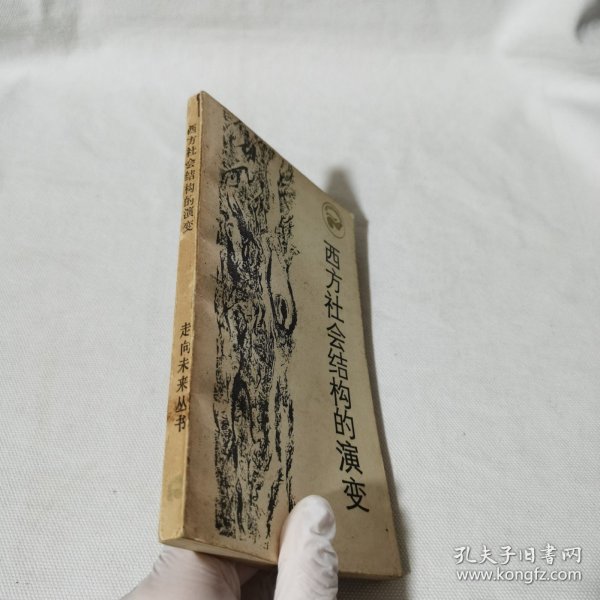 西方社会结构的演变
走向未来丛书
西方社会结构的演变
孔夫子旧书网
www.kongfz.com